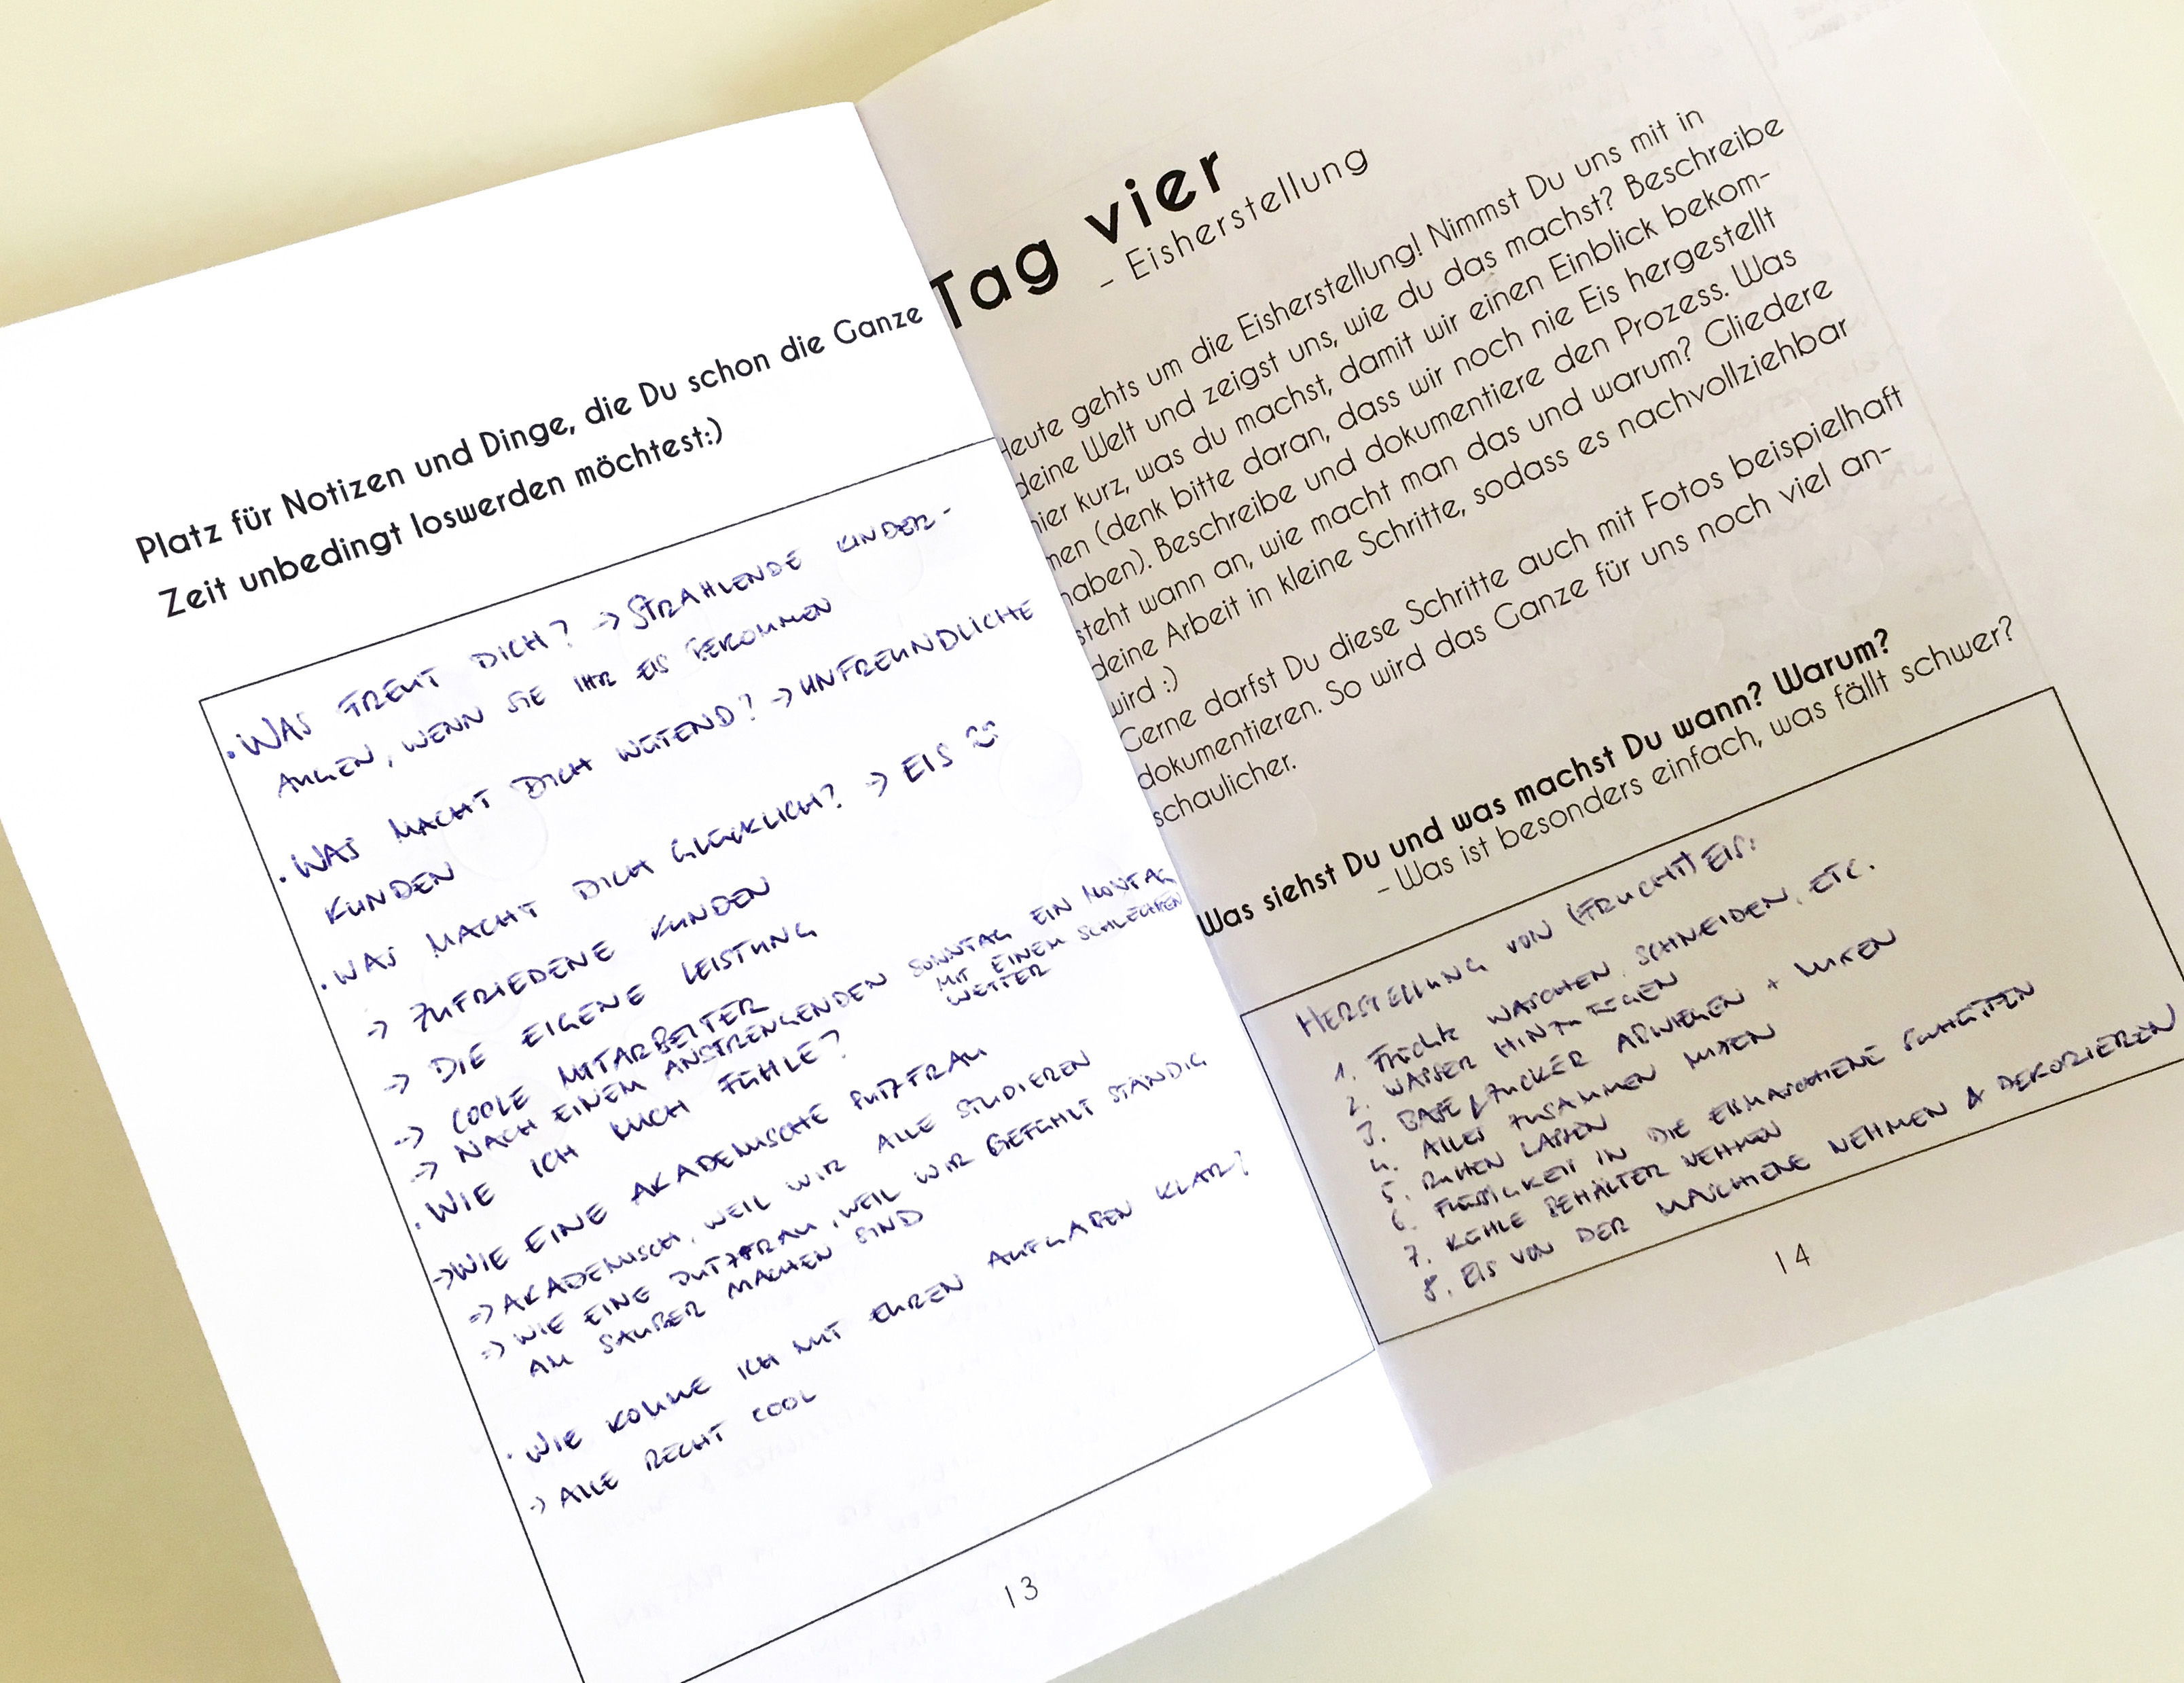 Platz für Notizen und Dinge, die Du schon die Ganze
Zeit unbedingt loswerden möchtest:)
· WAS FREUT DICH? → STRAHLENDE KINDER-
AUGEN, WENN SIE IHR EIS BEKOMMEN
· WAS MACHT DICH WÜTEND? → UNFREUNDLICHE
KUNDEN
· WAS MACHT DICH GLÜCKLICH? → EIS
→ ZUFRIEDENE KUNDEN
→ DIE EIGENE LEISTUNG
→ COOLE MITARBEITER
→ NACH EINEM ANSTRENGENDEN SONNTAG EIN MONTAG
MIT EINEM SCHLECHTEN
WETTER
· WIE ICH MICH FÜHLE?
→ WIE EINE AKADEMISCHE PUTZFRAU
→ AKADEMISCH, WEIL WIR ALLE STUDIEREN
→ WIE EINE PUTZFRAU, WEIL WIR GEFÜHLT STÄNDIG
AM SAUBER MACHEN SIND
· WIE KOMME ICH MIT EUREN AUFGABEN KLAR?
→ ALLE RECHT COOL
13
Tag vier
– Eisherstellung
Heute gehts um die Eisherstellung! Nimmst Du uns mit in
deine Welt und zeigst uns, wie du das machst? Beschreibe
hier kurz, was du machst, damit wir einen Einblick bekom-
men (denk bitte daran, dass wir noch nie Eis hergestellt
haben). Beschreibe und dokumentiere den Prozess. Was
steht wann an, wie macht man das und warum? Gliedere
deine Arbeit in kleine Schritte, sodass es nachvollziehbar
wird :)
Gerne darfst Du diese Schritte auch mit Fotos beispielhaft
dokumentieren. So wird das Ganze für uns noch viel an-
schaulicher.
Was siehst Du und was machst Du wann? Warum?
– Was ist besonders einfach, was fällt schwer?
HERSTELLUNG VON (FRUCHT) EIS:
1. Früchte WASCHEN, SCHNEIDEN, ETC.
2. WASSER HINZUFÜGEN
3. BASE / ZUCKER ABWIEGEN + MIXEN
4. ALLES ZUSAMMEN MIXEN
5. RUHEN LASSEN
6. FLÜSSIGKEIT IN DIE EISMASCHIENE SCHÜTTEN
7. KÜHLE BEHÄLTER NEHMEN
8. EIS VON DER MASCHIENE NEHMEN & DEKORIEREN
14